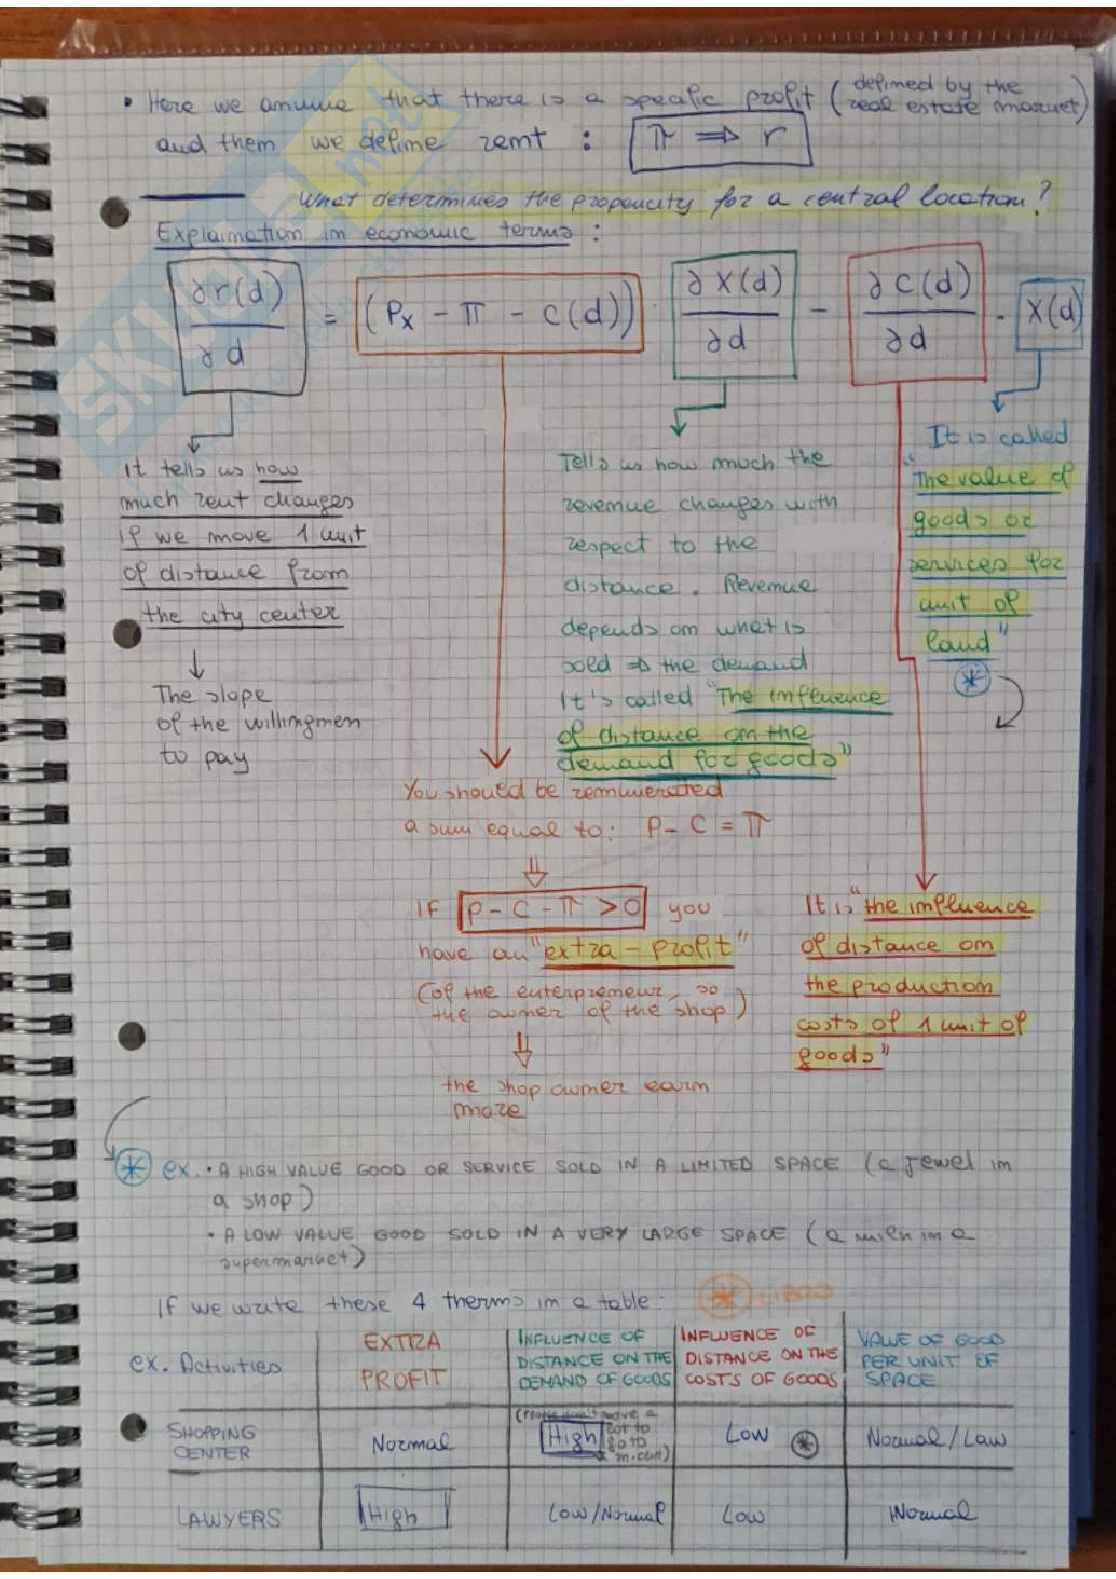 • Here we assume that there is a specific profit (defined by the real estate market)
and them we define remt : π ⇒ r
What determines the propencity for a central location?
Explaination in economic terms :
∂r(d)/∂d = (Px - π - c(d)) · ∂X(d)/∂d - ∂C(d)/∂d · X(d)
It tells us how
much rent changes
if we move 1 unit
of distance from
the city center
↓
The slope
of the willingmen
to pay
Tells us how much the
revenue changes with
respect to the
distance. Revenue
depends on what is
sold ⇒ the demand
It's called "The influence
of distance on the
demand for goods"
It is called
"The value of
goods or
services for
unit of
land"
*
You should be remunerated
a sum equal to: P - C = π
⇓
IF P - C - π > 0 you
have an "extra - profit"
(of the enterpreneur, so
the owner of the shop)
⇓
the shop owner earn
more
It is "the influence
of distance on
the production
costs of 1 unit of
goods"
* ex. • A HIGH VALUE GOOD OR SERVICE SOLD IN A LIMITED SPACE (a jewel in
a shop)
• A LOW VALUE GOOD SOLD IN A VERY LARGE SPACE (a milk in a
supermarket)
IF we write these 4 therms in a table: *
ex. Activities
EXTRA
PROFIT
INFLUENCE OF
DISTANCE ON THE
DEMAND OF GOODS
INFLUENCE OF
DISTANCE ON THE
COSTS OF GOODS
VALUE OF GOOD
PER UNIT OF
SPACE
SHOPPING
CENTER
Normal
High
Low *
Normal/Low
LAWYERS
High
Low/Normal
Low
Normal
SKUOLA.net